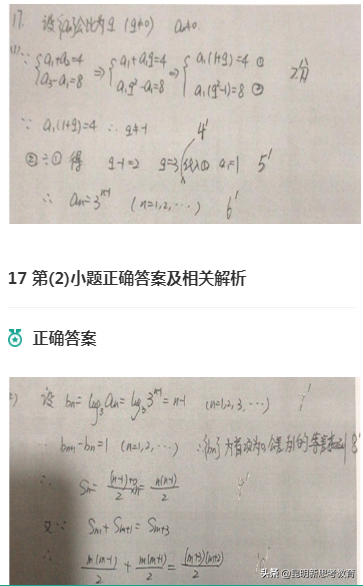 17. 设{an}公比为q (q≠0) an≠0.
(1) ∵ { a₁+a₂=4 a₃-a₁=8 ⇒ { a₁+a₁q=4 a₁q²-a₁=8 ⇒ { a₁(1+q)=4 ① a₁(q²-1)=8 ② 2分
∵ a₁(1+q)=4 ∴ q≠-1 4'
②÷① 得 q-1=2 q=3 代入① a₁=1 5'
∴ an=3ⁿ⁻¹ (n=1,2,⋯) 6'
17 第(2)小题正确答案及相关解析
正确答案
) 设 bn=log₃an=log₃3ⁿ⁻¹=n-1 (n=1,2,3,⋯) 7'
bn+1-bn=1 (n=1,2,⋯) ∴{bn}为首项为0公差为1的等差数列 8'
∴ Sn=(n-1)+0/2 ×n=n(n-1)/2 9'
又∵ Sm+Sm+1=Sm+3
∴ m(m-1)/2+m(m+1)/2=(m+3)(m+2)/2
头条 @昆明新思考教育